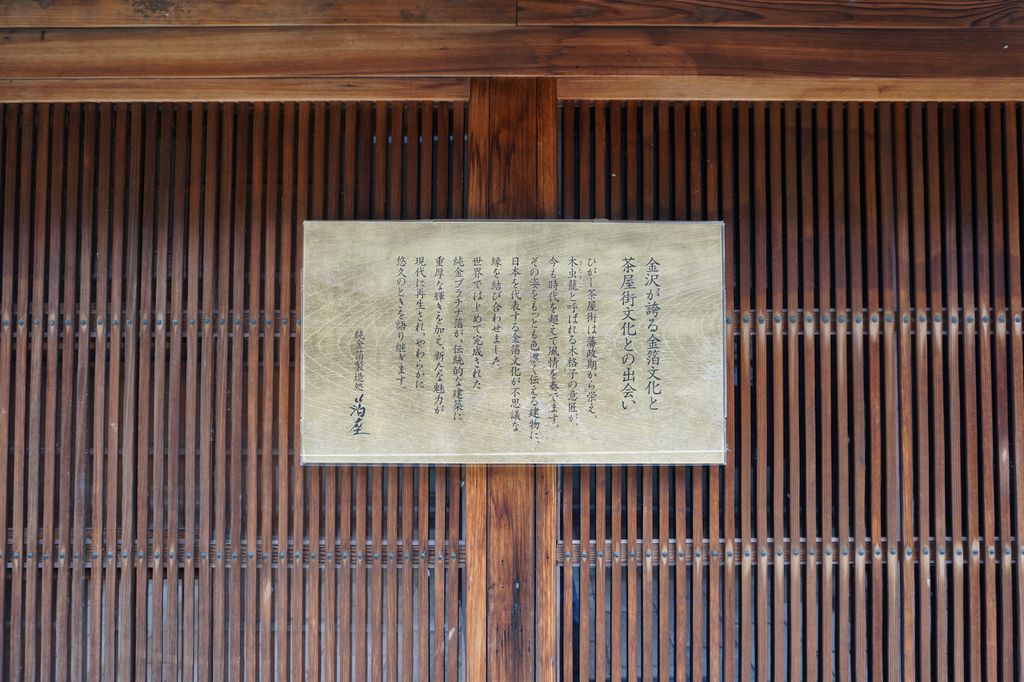 金沢が誇る金箔文化と
茶屋街文化との出会い
ひがし茶屋街は藩政期から栄え、
木虫籠と呼ばれる木格子の意匠が、
今も時代を超えて風情を奏でます。
その姿をもっとも色濃く伝える建物に、
日本を代表する金箔文化が不思議な
縁を結び合わせました。
世界ではじめて完成された
純金プラチナ箔が、伝統的な建築に
重厚な輝きを加え、新たな魅力が
現代に再生され、やわらかに
悠久のときを語り継ぎます。
純金箔製造処 箔座